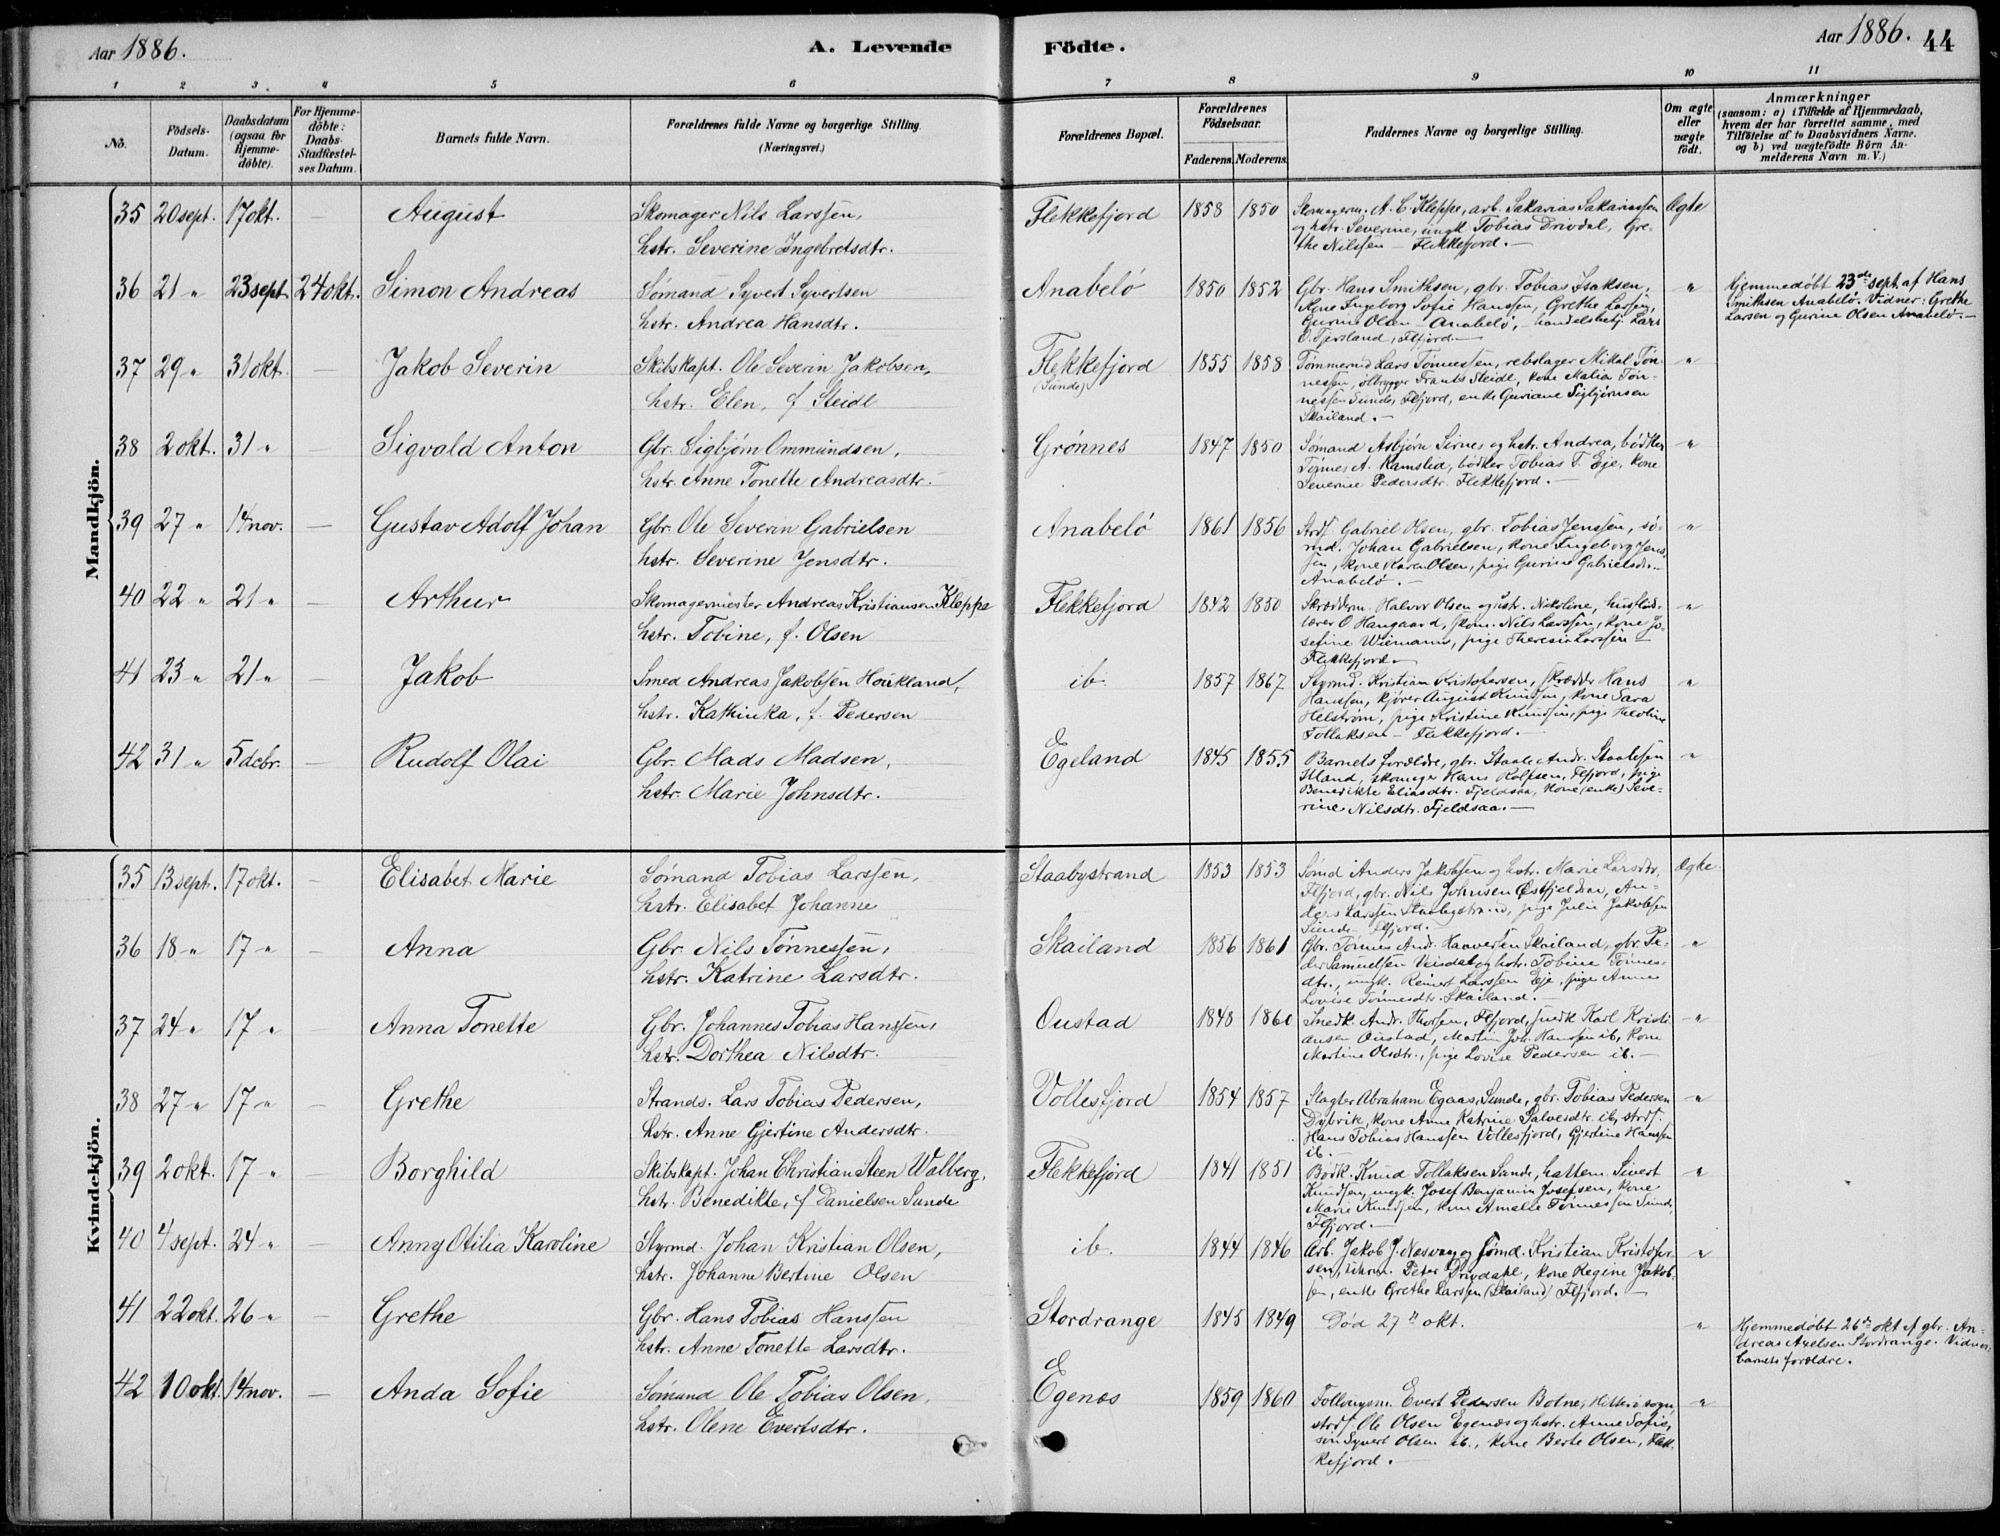 Aar 1886.
A. Levende
Födte.
Aar 1886.
44
1 2 3. 4 5 6 7 8 9 10 11
No.
Födsels-Datum.
Daabsdatum (ogsaa for Hjemme-döbte).
For Hjemme-döbte: Daabs-Stadfæstel-ses Datum.
Barnets fulde Navn.
Forældrenes fulde Navne og borgerlige Stilling.
(Næringsvei.)
Forældrenes Bopæl.
Forældrenes Födselsaar.
Faderens. Moderens.
Faddernes Navne og borgerlige Stilling.
Om ægte eller uægte födt.
Anmærkninger
(saasom: a) i Tilfælde af Hjemmedaab,
hvem der har forrettet samme, med
Tilföielse af to Daabsvidners Navne.
og b) ved uægtefödte Börn An-
melderens Navn m. V.)
Mandkjön.
35 20 sept. 17 okt. — August Skomager Nils Larssen, Flekkefjord 1858 1850 Skomagerm. A. C. Kleppe, arb. Sakarias Sakariassen Ægte
hstr. Severine Ingebretsdtr. og hstr. Severine, ungk. Tobias Drivdal, Gre-
the Nilssen — Flekkefjord. —
36 21 " 23 sept 24 okt. Simon Andreas Sømand Syvert Syvertsen Anabelø 1850 1852 Gbr. Hans Smithsen, gbr. Tobias Isaksen, " Hjemmedøbt 23de sept. af Hans
hstr. Andrea Hansdtr. Kone Ingeborg Sofie Hanssen, Grethe Larssen, Smithsen Anabelø. Vidner: Grethe
Gurine Olsen — Anabelø, — handelsbetj. Lars Larsen og Gurine Olsen Anabelø. —
O. Tjersland, Ffjord. —
37 29 " 31 okt. — Jakob Severin Skibskapt. Ole Severin Jakobsen, Flekkefjord 1855 1858 Tømmermd Lars Tønnessen, rebslager Mikal Tøn- "
hstr. Elen, f. Steidl (Sunde) nessen, ølbrygger Frants Steidl, kone Malia Tøn-
nessen Sunde, Ffjord, enke Guriane Sigbjørnsen
Skailand. —
38 2 okt. 31 " — Sigvald Anton Gbr. Sigbjørn Ommundsen, Grønnes 1847 1850 Sømand Asbjørn Sirnes og hstr. Andrea, bødker "
hstr. Anne Tonette Andreasdtr. Tønnes A. Kamslid, bødker Tobias T. Eje, kone
Severine Pedersdtr. Flekkefjord. —
39 27 " 14 nov. — Gustav Adolf Johan Gbr. Ole Severin Gabrielsen Anabelø 1861 1856 Strdf. Gabriel Olsen, gbr. Tobias Jenssen, sø- "
hstr. Severine Jensdtr. md. Johan Gabrielsen, kone Ingeborg Jens-
sen, kone Karen Olsen, pige Gurine Gabrielsdtr.
Anabelø. —
40 22 " 21 " — Arthur Skomagermester Andreas Kristiansen Kleppe Flekkefjord 1842 1850 Skrædderm. Halvor Olsen og hstr. Nikoline, husflids- "
hstr. Tobine, f. Olsen lærer O Haugaard, skom. Nils Larssen, kone Jo-
sefine Wiemann, pige Theresia Larssen —
Flekkefjord. —
41 23 " 21 " — Jakob Smed Andreas Jakobsen Houkland, ib. 1857 1867 Styrmd. Kristian Kristofersen, skrædder Hans "
hstr. Kathinka, f. Pedersen Hanssen, kjører August Knudsen, kone Sara
Helstrøm, pige Kristine Knudsen, pige
Tollaksen — Flekkefjord. —
42 31 " 5 dcbr. — Rudolf Olai Gbr. Mads Madsen, Egeland 1845 1855 Barnets forældre, gbr. Staale Andr. Staalesen "
hstr. Marie Johnsdtr. skomager Hans Rolfsen, Ffjord, pige
Benedikte Eliasdtr. Fjeldsaa, kone (enke) Seve-
rine Nilsdtr. Fjeldsaa. —
Kvindekjön.
35 13 sept. 17 okt. — Elisabet Marie Sømand Tobias Larssen, Staabystrand 1853 1853 Sømd Anders Jakobsen og hstr. Marie Larsdtr, Ægte
hstr. Elisabet Johanne Ffjord, gbr. Nils Johnsen An-
ders Larssen Staabystrand, pige Julie Jakobsen
Sunde Ffjord. —
36 18 " 17 " — Anna Gbr. Nils Tønnessen, Skailand 1856 1861 Gbr. Tønnes Andr. Haaversen Skailand, gbr. Pe- "
hstr. Katrine Larsdtr. der Samuelsen Veisdal og hstr. Tobine Tønnes-
dtr., ungk. Reinert Larssen Eje, pige Anne
Lovise Tønnesdtr. Skailand. —
37 24 " 17 " — Anna Tonette Gbr. Johannes Tobias Hanssen, Oustad 1848 1860 Snedk. Andr. Thorsen, Ffjord, snedk Karl Kristi- "
hstr. Dorthea Nilsdtr. ansen Oustad, Martin Joh. Hanssen ib, kone
Martine Olsdtr., pige Lovise Pedersen ib. —
38 27 " 17 " — Grethe Strands. Lars Tobias Pedersen, Vollesfjord 1854 1857 Slagter Abraham Egaas, Sunde, gbr. Tobias Pedersen "
hstr. Anne Gjertine Andersdtr. Dybvik, kone Anne Katrine Salvesdtr. ib, strdf.
Hans Tobias Hanssen Vollesfjord, Gjertine Hanssen
ib. —
39 2 okt. 17 " — Borghild Skibskapt. Johan Christian Steen Walberg, Flekkefjord 1841 1851 Bødk. Knud Tollaksen Sande, hattem. Sivert "
hstr. Benedikte, f. Danielsen Sunde Knudsen, ungk. Josef Benjamin Josefsen, kone
Marie Knudsen, kone Amalie Tønnessen Sunde,
Ffjord. —
40 4 sept. 24 " — Anny Otilia Karoline Styrmd. Johan Kristian Olsen, ib. 1844 1846 Arb. Jakob J. Næsvaag og sømd. Kristian Kristofer- "
hstr. Johanne Bertine Olsen sen, Peter Drivdahl, kone Regine Jakob-
sen, enke Grethe Larssen (Skailand) Ffjord. —
41 22 okt. 26 " Grethe Gbr. Hans Tobias Hanssen Stordrange 1845 1849 Død 27de okt. " Hjemmedøbt 26de okt af gbr. An-
hstr. Anne Tonette Larsdtr. dreas Axelsen Stordrange. Vidner:
barnets forældre.
42 10 okt. 14 nov. — Anda Sofie Sømand Ole Tobias Olsen, Egenæs 1859 1860 Evert Pedersen Botne, Hitterø sogn, "
hstr. Olene Evertsdtr. strdf. Ole Olsen Egenæs og hstr. Anne Sofie,
søn Syvert Olsen ib., kone Berte Olsen, Flek-
kefjord. —